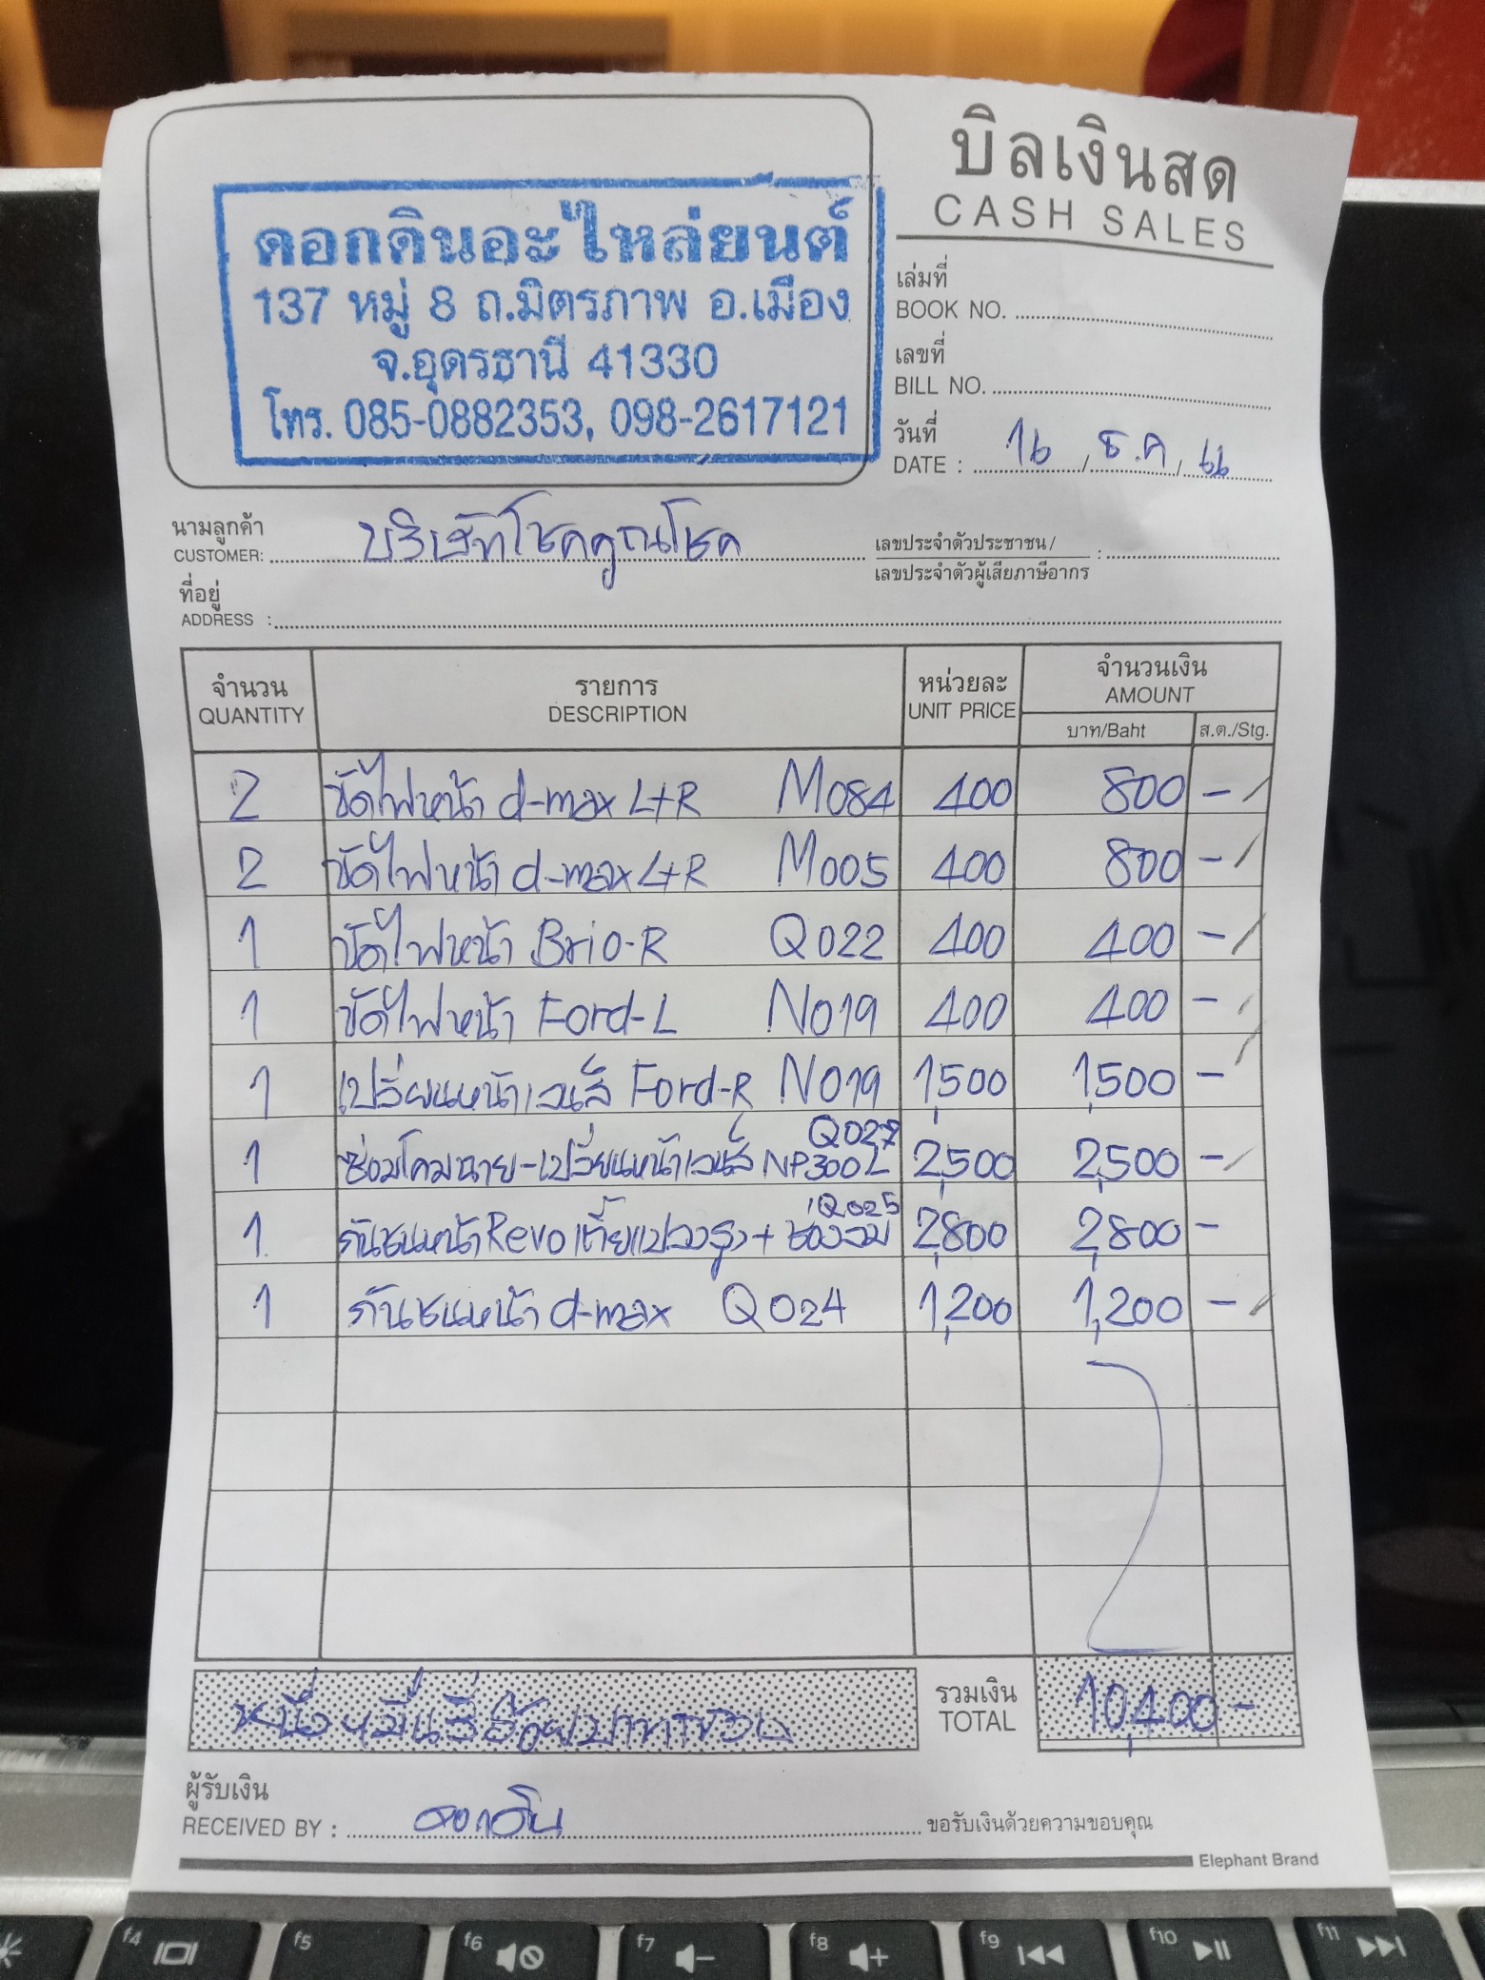 บิลเงินสด
CASH SALES
ดอกดินอะไหล่ยนต์
137 หมู่ 8 ถ.มิตรภาพ อ.เมือง
จ.อุดรธานี 41330
โทร. 085-0882353, 098-2617121
เล่มที่
BOOK NO.
เลขที่
BILL NO.
วันที่
DATE : 16 / ธ.ค / 66
นามลูกค้า
CUSTOMER: บริษัทโชคคูณโชค
เลขประจำตัวประชาชน /
เลขประจำตัวผู้เสียภาษีอากร :
ที่อยู่
ADDRESS :
จำนวน รายการ หน่วยละ จำนวนเงิน
QUANTITY DESCRIPTION UNIT PRICE AMOUNT
บาท/Baht ส.ต./Stg.
2 ขัดไฟหน้า d-max L+R M084 400 800 -
2 ขัดไฟหน้า d-max L+R M005 400 800 -
1 ขัดไฟหน้า Brio-R Q022 400 400 -
1 ขัดไฟหน้า Ford-L N019 400 400 -
1 เปลี่ยนหน้าเลนส์ Ford-R N019 1,500 1,500 -
1 ซ่อมโคมฉาย-เปลี่ยนหน้าเลนส์ NP300 L Q027 2,500 2,500 -
1 กันชนหน้า Revo เตี้ยแปลงสูง + ช่องลม Q025 2,800 2,800 -
1 กันชนหน้า d-max Q024 1,200 1,200 -
หนึ่งหมื่นสี่ร้อยบาทถ้วน
รวมเงิน
TOTAL 10,400 -
ผู้รับเงิน
RECEIVED BY : ดอกดิน
ขอรับเงินด้วยความขอบคุณ
Elephant Brand
f4
f5
f6
f7
f8
f9
f10
f11